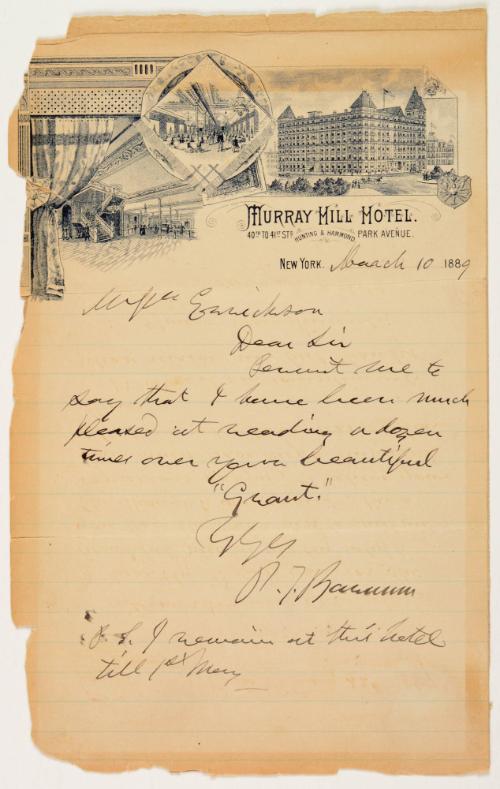 MURRAY HILL HOTEL.
40TH TO 41ST STS. HUNTING & HAMMOND. PARK AVENUE.
NEW YORK. March 10 1889
Enrickson
Dear Sir
Permit me to
say that I have been much
pleased at reading a dozen
times over your beautiful
"Grant."
P. T. Barnum
P. S. I remain at this hotel
till 1st May